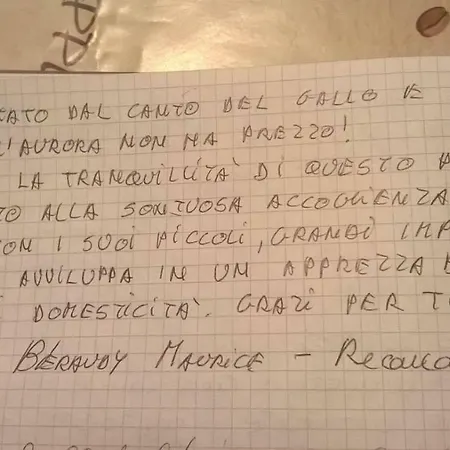 CATO DAL CANTO DEL GALLO E
L'AURORA NON HA PREZZO!
LA TRANQUILLITA' DI QUESTO
TO ALLA SONTUOSA ACCOGLIENZA
ON I SUOI PICCOLI, GRANDI IMP
AVVILUPPA IN UN APPREZZAB
DOMESTICITA'. GRAZI PER T
BÉRAUDY MAURICE -